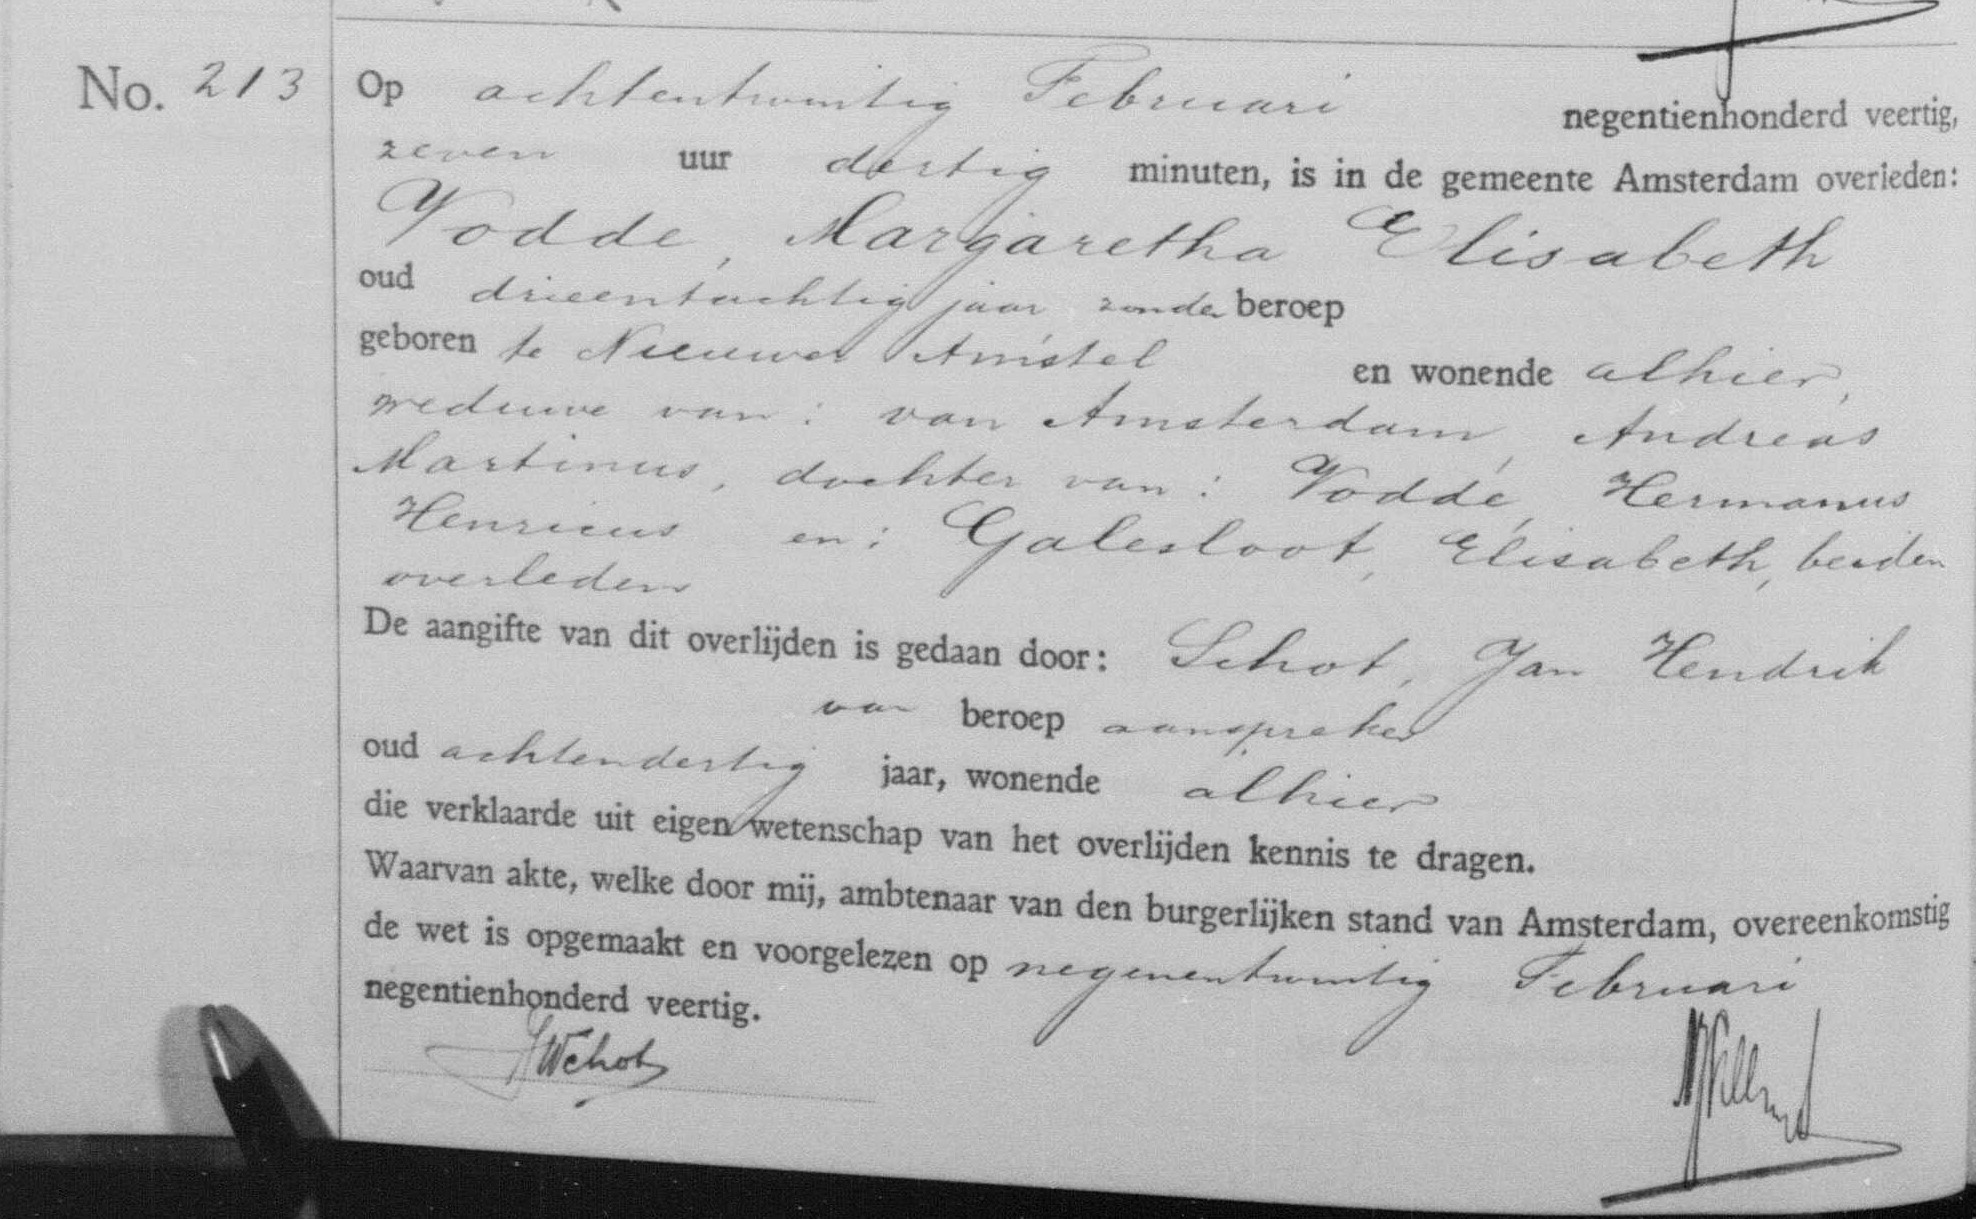 No. 213
Op achtentwintig Februari negentienhonderd veertig,
zeven uur dertig minuten, is in de gemeente Amsterdam overleden:
Vodde, Margaretha Elisabeth
oud drieentachtig jaar zonder beroep
geboren te Nieuwer Amstel en wonende alhier,
weduwe van: van Amsterdam, Andreas
Martinus, dochter van: Vodde, Hermanus
Henricus en: Galesloot, Elisabeth, beiden
overleden
De aangifte van dit overlijden is gedaan door: Schot, Jan Hendrik
van beroep aanspreker
oud achtendertig jaar, wonende alhier
die verklaarde uit eigen wetenschap van het overlijden kennis te dragen.
Waarvan akte, welke door mij, ambtenaar van den burgerlijken stand van Amsterdam, overeenkomstig
de wet is opgemaakt en voorgelezen op negenentwintig Februari
negentienhonderd veertig.